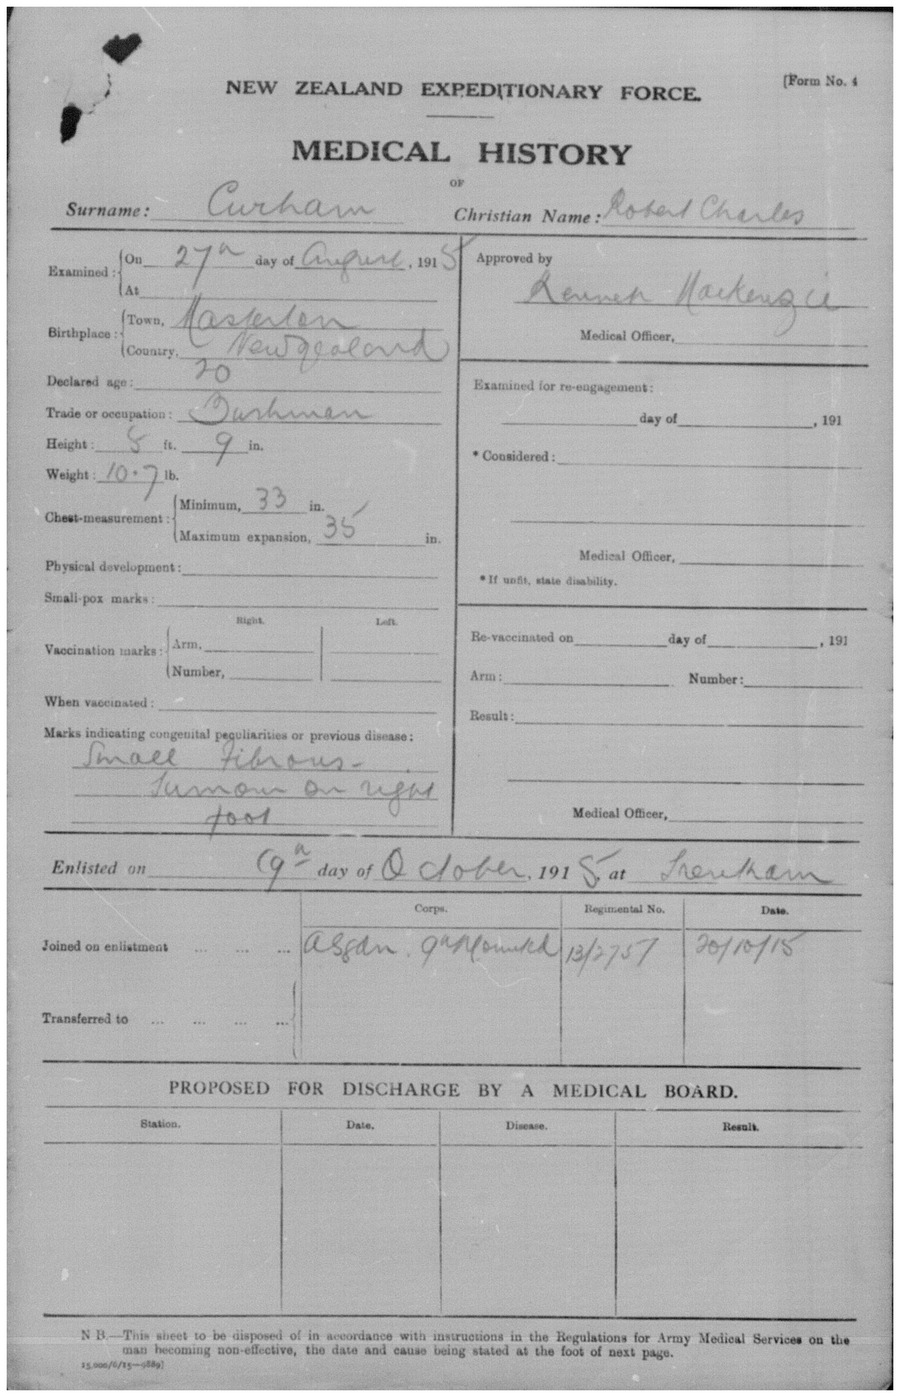 [Form No. 4
NEW ZEALAND EXPEDITIONARY FORCE.
MEDICAL HISTORY
OF
Surname: Curham Christian Name: Robert Charles
Examined: On 27th day of August, 1915
At
Birthplace: Town, Masterton
Country, New Zealand
Declared age: 20
Trade or occupation: Bushman
Height: 5 ft. 9 in.
Weight: 10.7 lb.
Chest-measurement: Minimum, 33 in.
Maximum expansion, 35 in.
Physical development:
Small-pox marks:
Right. Left.
Vaccination marks: Arm,
Number,
When vaccinated:
Marks indicating congenital peculiarities or previous disease:
Small Fibrous-
Tumour on right
foot
Approved by
Kenneth MacKenzie
Medical Officer,
Examined for re-engagement:
day of , 191
* Considered:
Medical Officer,
* If unfit, state disability.
Re-vaccinated on day of , 191
Arm: Number:
Result:
Medical Officer,
Enlisted on 19th day of October, 1915 at Trentham
Corps. Regimental No. Date.
Joined on enlistment ... ... ... 9th Mounted 13/2757 20/10/15
Transferred to ... ... ... ...
PROPOSED FOR DISCHARGE BY A MEDICAL BOARD.
Station. Date. Disease. Result.
N B.—This sheet to be disposed of in accordance with instructions in the Regulations for Army Medical Services on the
man becoming non-effective, the date and cause being stated at the foot of next page.
15,000/6/15—9889]